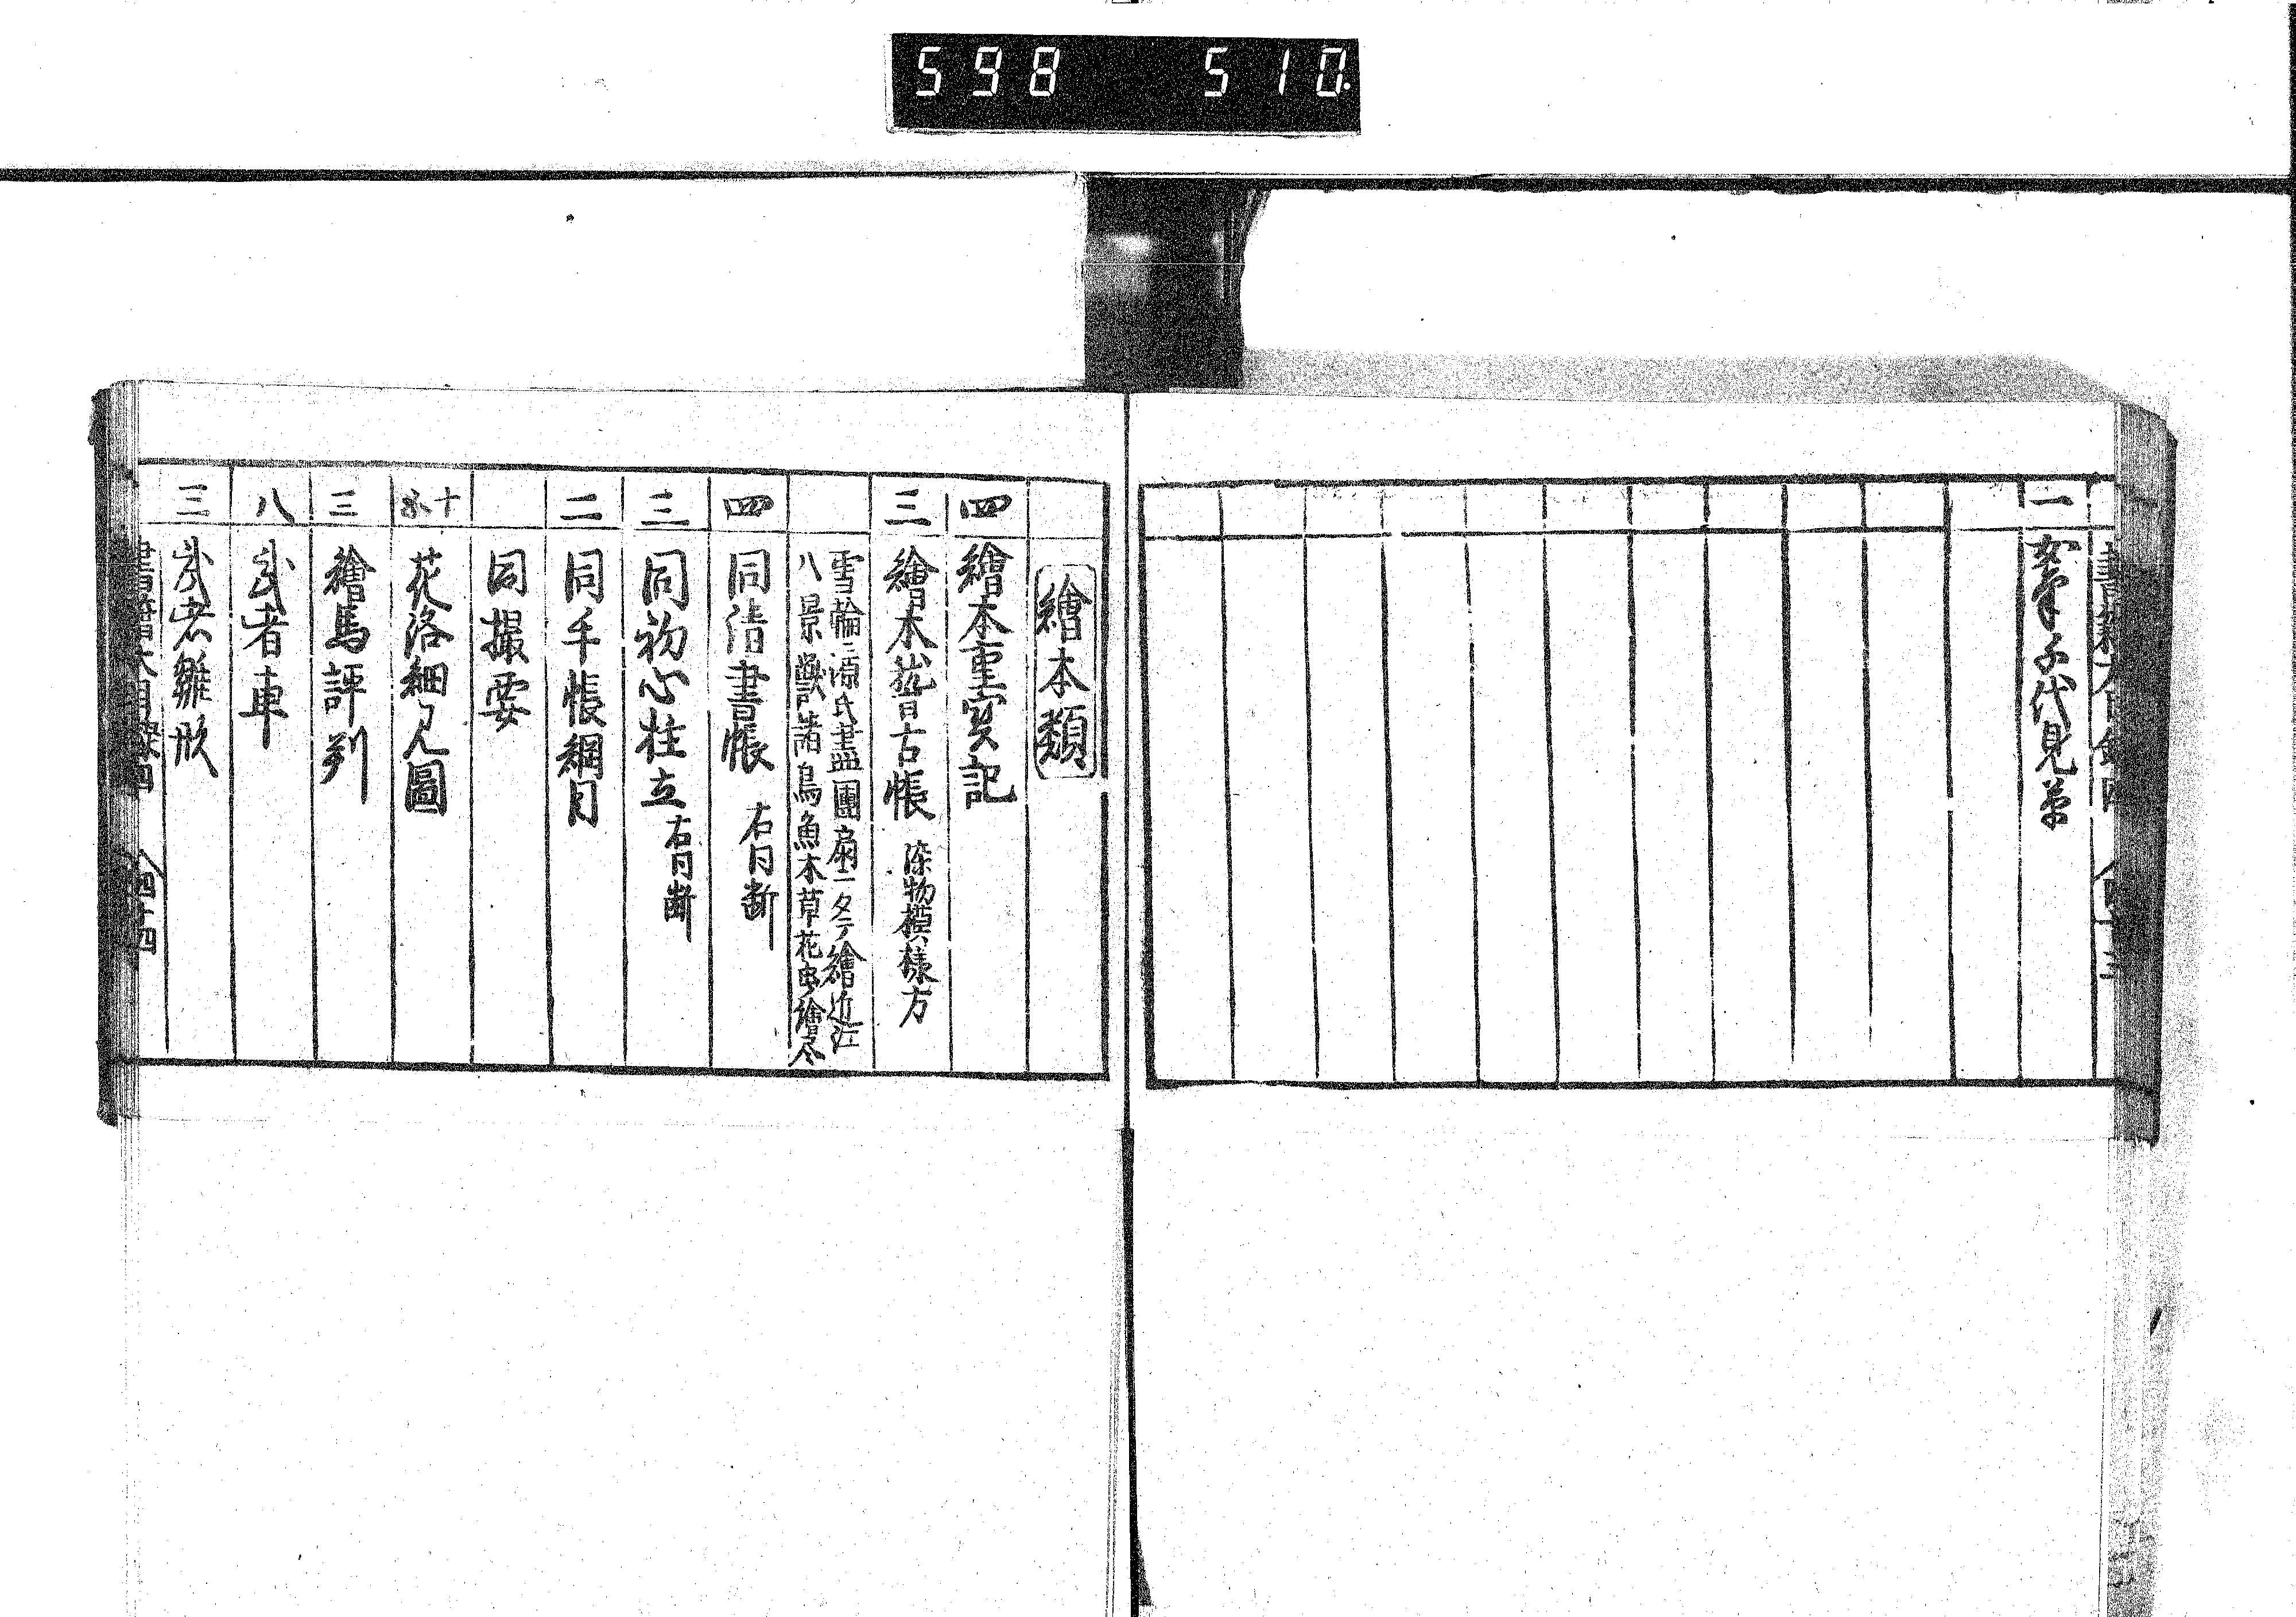 598 510
書籍大目録四 四十三
一 案千代見草
繪本類
四 繪本重寶記
三 繪本稽古帳 染物模様方
雪輪源氏畫盡團扇一夕繪近江
八景獸諸鳥魚木草花虫繪尽
四 同清書帳 右同断
三 同初心柱立 右同断
二 同手帳綱目
同撮要
十 花洛細見圖
三 繪馬評判
八 武者車
三 武者雛形
書籍大目録四 四十四